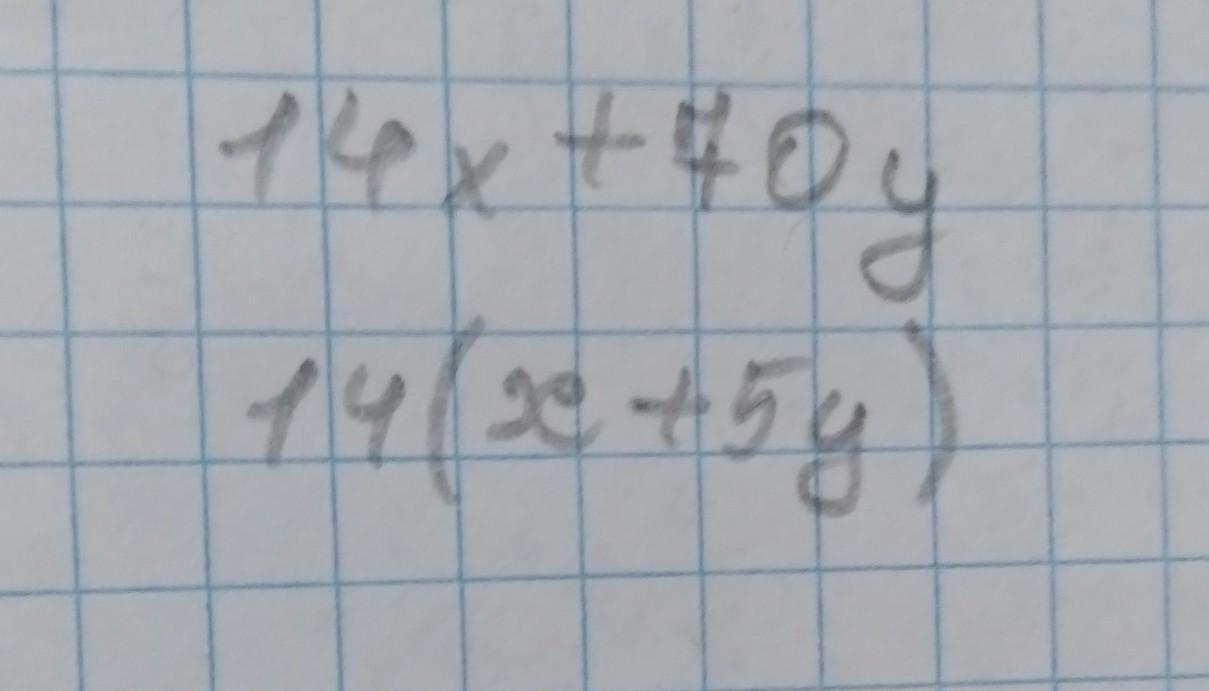 14x+70y
14(x+5y)